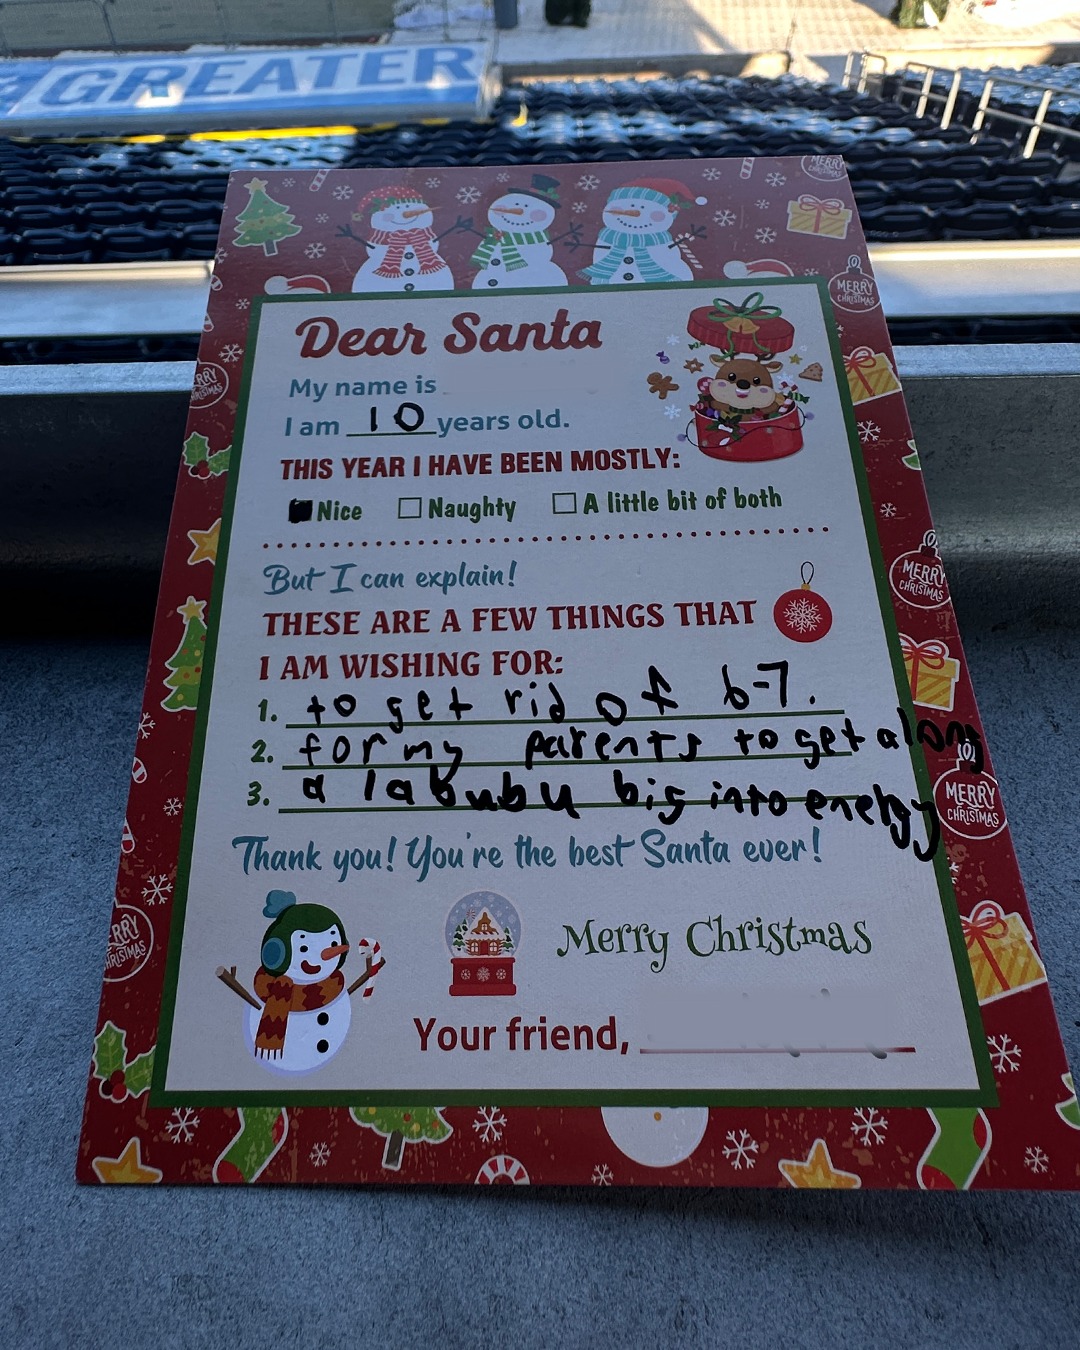 GREATER
MERRY
CHRISTMAS
Dear Santa
My name is
I am 10 years old.
THIS YEAR I HAVE BEEN MOSTLY:
Nice Naughty A little bit of both
But I can explain!
THESE ARE A FEW THINGS THAT
I AM WISHING FOR:
1. to get rid of 6-7.
2. for my parents to get along
3. a labubu big into energy
Thank you! You're the best Santa ever!
Merry Christmas
Your friend,
MERRY
CHRISTMAS
MERRY
CHRISTMAS
MERRY
CHRISTMAS
ERRY
RISTMAS
ERRY
HRISTMAS